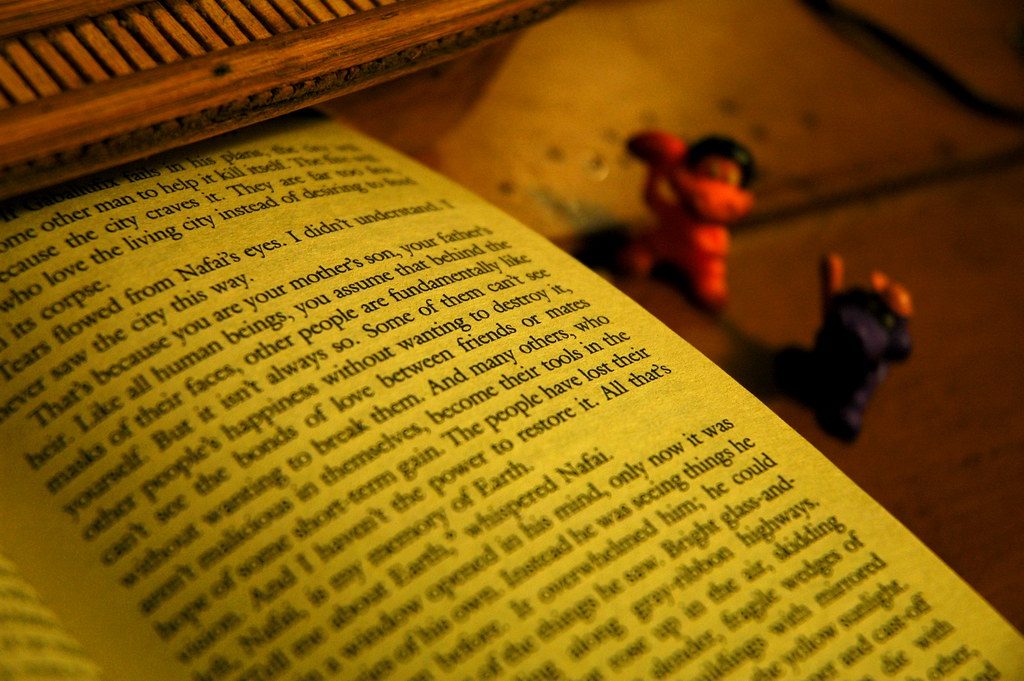 fails in his plans, the city
some other man to help it kill itself. The fires
because the city craves it. They are far too
who love the living city instead of desiring to feed
its corpse.
Tears flowed from Nafai's eyes. I didn't understand. I
never saw the city this way.
That's because you are your mother's son, your father's
heir. Like all human beings, you assume that behind the
masks of their faces, other people are fundamentally like
yourself. But it isn't always so. Some of them can't see
other people's happiness without wanting to destroy it,
can't see the bonds of love between friends or mates
without wanting to break them. And many others, who
aren't malicious in themselves, become their tools in the
hope of some short-term gain. The people have lost their
vision. And I haven't the power to restore it. All that's
left, Nafai, is my memory of Earth.
"Tell me about Earth," whispered Nafai.
a window opened in his mind, only now it was
of his own. Instead he was seeing things he
before. It overwhelmed him; he could
of the things he saw. Bright glass-and-
along grey-ribbon highways.
up in the air, skidding
slender, fragile wedges of
buildings with mirrored
the yellow sunlight.
and cast-off
die with
other,